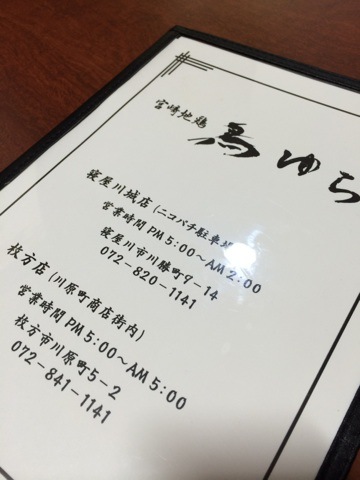 宮崎地鶏
鳥ゆら
寝屋川城店(ニコパチ駐車場
営業時間 PM 5:00～AM 2:00
寝屋川市川勝町9-14
072-820-1141
枚方店(川原町商店街内)
営業時間 PM 5:00～AM 5:00
枚方市川原町5-2
072-841-1141